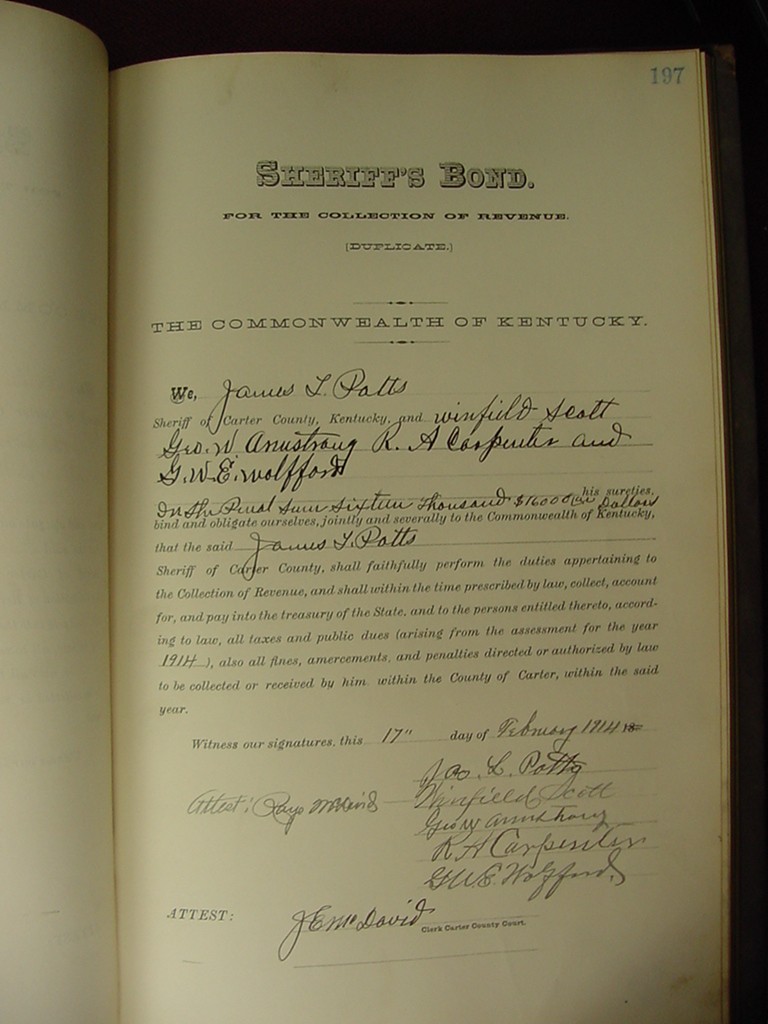 197
SHERIFF'S BOND.
FOR THE COLLECTION OF REVENUE.
(DUPLICATE.)
THE COMMONWEALTH OF KENTUCKY.
We, James L. Potts
Sheriff of Carter County, Kentucky, and Winfield Scott
Geo. W Armstrong R. A Carpenter and
G. W. E. Wolfford
In the Penal Sum Sixteen Thousand $16000 Dollars his sureties,
bind and obligate ourselves, jointly and severally to the Commonwealth of Kentucky,
that the said James L. Potts
Sheriff of Carter County, shall faithfully perform the duties appertaining to
the Collection of Revenue, and shall within the time prescribed by law, collect, account
for, and pay into the treasury of the State. and to the persons entitled thereto, accord-
ing to law, all taxes and public dues (arising from the assessment for the year
1914), also all fines, amercements, and penalties directed or authorized by law
to be collected or received by him within the County of Carter, within the said
year.
Witness our signatures, this 17" day of February 1914 18
Jas. L. Potts
Attest: McDavid Winfield Scott
Geo W Armstrong
R A Carpenter
G W E. Wolfford
ATTEST: J E McDavid
Clerk Carter County Court.